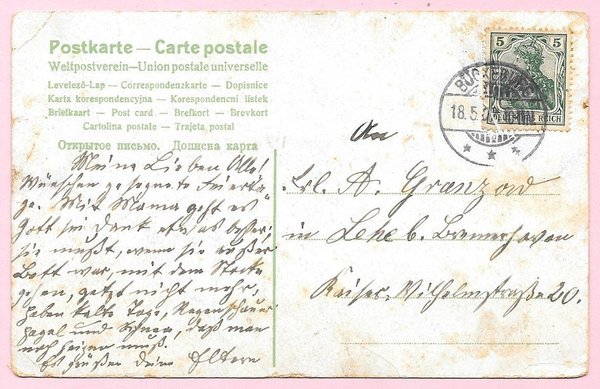 Postkarte — Carte postale
Weltpostverein — Union postale universelle
Levelező-Lap — Correspondenzkarte — Dopisnice
Karta korespondencyjna — Korespondencni listek
Briefkaart — Post card — Brefkort — Brevkort
Cartolina postale — Trajcta postal
Открытое письмо. Дописна карта
5 5
DEUTSCHES REICH
18.5.
An
Frl. A. Granzow
in Lehe b. Bremerhaven
Kaiser-Wilhelmstraße 20.
Meine Lieben Alle!
Wünschen gesegnete Feierta-
ge. Mit Mama geht es
Gott sei Dank etwas besser,
sie mußt, wenn sie außer
Bett war, mit dem Stocke
gehen, jetzt nicht mehr,
haben kalte Tage, Regenschauer
Hagel und Schnee, daß man
noch heizen muß.
Es grüßen deine Eltern